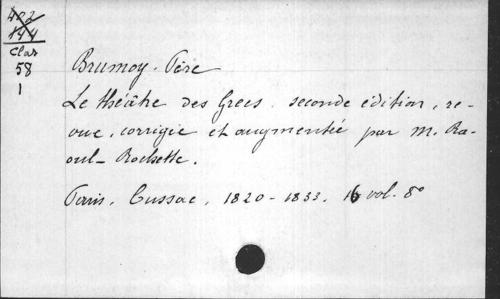 402
144
Clas
58
1
Brumoy. Père
Le théâtre des Grecs. seconde édition, re-
vue, corrigée et augmentée par M. Ra-
oul-Rochette.
Paris, Cussac, 1820-1833. 16 vol. 8°